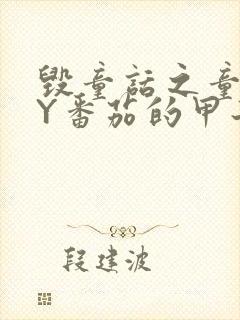 毁童话之童
Y番茄的甲
段建波